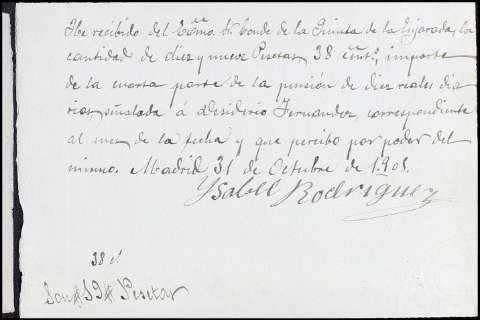 He recibido del Excmo. Sr. Conde de la Quinta de la Enjarada, la
cantidad de diez y nueve Pesetas 38 cents, importe
de la cuarta parte de la pensión de diez reales dia
rios señalada á Desiderio Fernandez, correspondiente
al mes de la fecha y que percibo por poder del
mismo. Madrid 31 de Octubre de 1901.
Ysabel Rodríguez
38 ct
Son #19# Pesetas